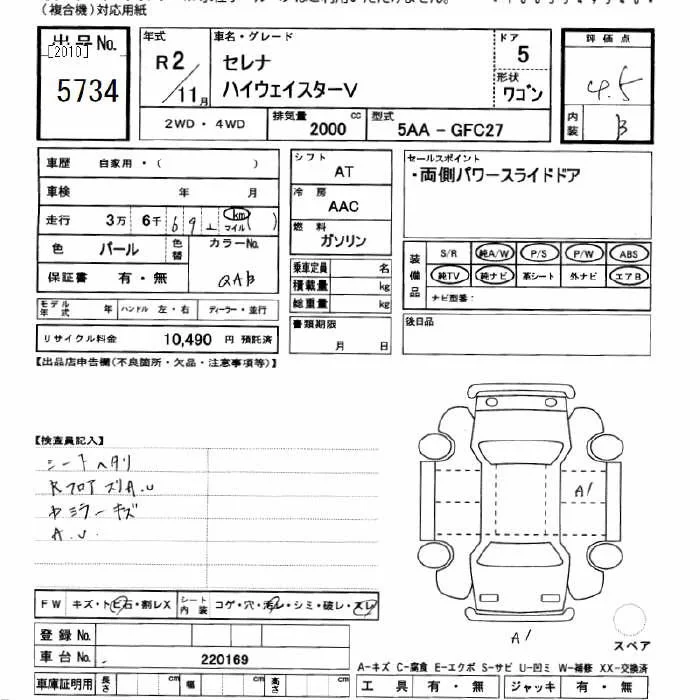 (複合機)対応用紙
出品No.
[2010]
5734
年式
R2/11月
車名・グレード
セレナ
ハイウェイスターV
ドア
5
形状
ワゴン
評価点
4.5
内装
B
2WD・4WD
排気量 2000 cc
型式 5AA-GFC27
車歴 自家用・( )
車検 年 月
走行 3万 6千 6 9 1 (km マイル)
色 パール 色替 カラーNo. QAB
保証書 有・無
モデル年式 年 ハンドル 左・右 ディーラー・並行
リサイクル料金 10,490 円 預託済
シフト
AT
冷房
AAC
燃料
ガソリン
乗車定員 名
積載量 kg
総重量 kg
書類期限
月 日
セールスポイント
・両側パワースライドドア
装備品
S/R 純A/W P/S P/W ABS
純TV 純ナビ 革シート 外ナビ エアB
ナビ型番:
後日品
【出品店申告欄(不良箇所・欠品・注意事項等)】
【検査員記入】
シートヘタリ
RフロアズリA.U
ヤミラーキズ
A.U.
A1
A1
スペア
FW キズ・トビ石・割レX シート内装 コゲ・穴・汚レ・シミ・破レ・スレ
登録No.
車台No. 220169
車庫証明用 長さ cm 幅 cm 高さ cm
A-キズ C-腐食 E-エクボ S-サビ U-凹ミ W-補修 XX-交換済
工具 有・無 ジャッキ 有・無